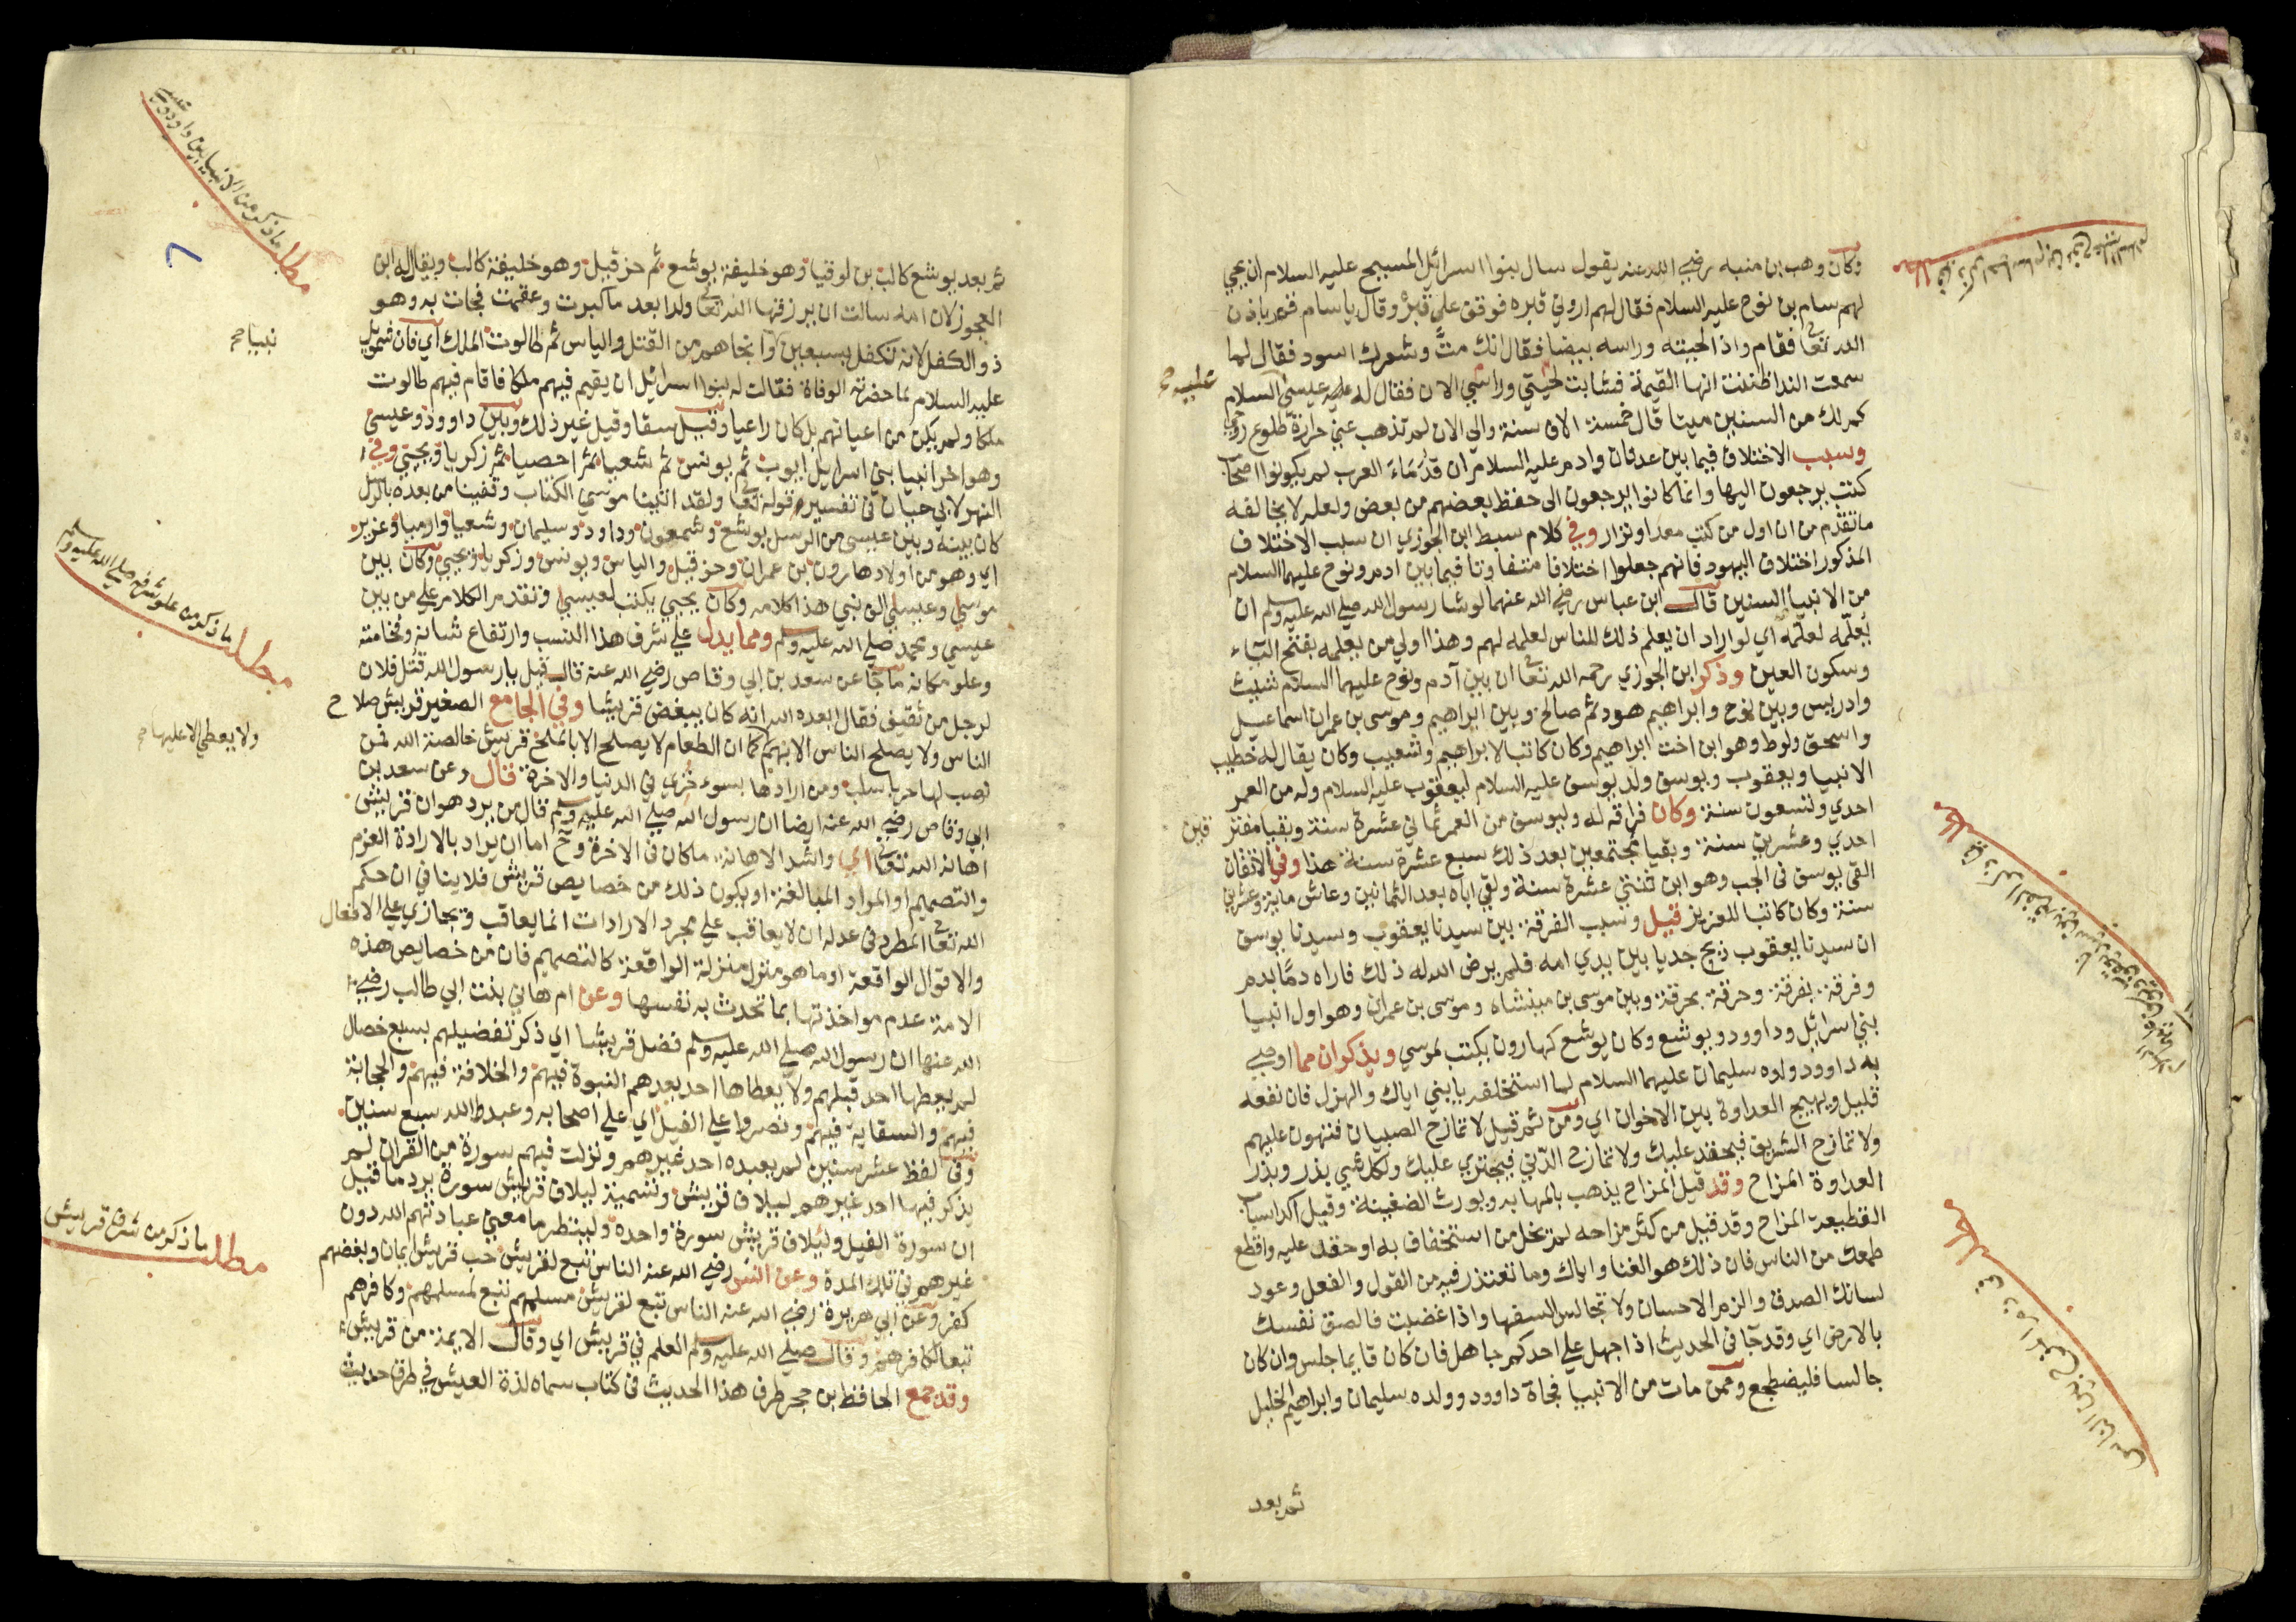 وكان وهب بن منبه رضي الله عنه يقول سال بنوا اسرائل المسيح عليه السلام ان يحيي
لهم سام بن نوح عليه السلام فقال لهم اروني قبره فوقف على قبره وقال ياسام قم باذن
الله تعا فقام واذا لحيته وراسه بيضا فقال انك متَّ وشعرك اسود فقال لما
سمعت الندا ظننت انها القيمة فشابت لحيتي وراسي الان فقال له عيسى عليه السلام
كم لك من السنين ميتا قال خمسة الاف سنة والي الان لم تذهب عني حرارة طلوع روحي
وسبب الاختلاف فيما بين عدنان وادم عليه السلام ان قُدَمَاءَ العرب لم يكونوا اصحاب
كتب يرجعون اليها وانما كانوا يرجعون الى حفظ بعضهم من بعض ولعله لا يخالفه
ما تقدم من ان اول من كتب معد او نزار وفي كلام سبط ابن الجوزي ان سبب الاختلاف
المذكور اختلاف اليهود فانهم جعلوا اختلافا متفاوتا فيما بين ادم ونوح عليهما السلام
من الانبيا السنين قال ابن عباس رضي الله عنهما لو شا رسول الله صلي الله عليه وسلم ان
يُعلّمه لعلّمه اي لو اراد ان يعلم ذلك للناس لعلمه لهم وهذا اولي من يعلمه بفتح الياء
وسكون العين وذكر ابن الجوزي رحمه الله تعا ان بين آدم ونوح عليهما السلام شيث
وادريس وبين نوح وابراهيم هود ثم صالح وبين ابراهيم وموسى بن عمران اسماعيل
واسحق ولوط وهو ابن اخت ابراهيم وكان كاتبا لابراهيم وشعيب وكان يقال له خطيب
الانبيا ويعقوب ويوسف ولد يوسف عليه السلام ليعقوب عليه السلام وله من العمر
احدي وتسعون سنة وكان فراقه له وليوسف من العمر ثماني عشرة سنة وبقيا مفترقين
احدي وعشرين سنة وبقيا مجتمعين بعد ذلك سبع عشرة سنة هذا وفي الاتقان
القي يوسف في الجب وهو ابن ثنتي عشرة سنة ولقي اباه بعد الثمانين وعاش ماية وعشرين
سنة وكان كاتبا للعزيز قيل وسبب الفرقة بين سيدنا يعقوب وسيدنا يوسف
ان سيدنا يعقوب ذبح جديا بين يدي امه فلم يرض الله له ذلك فاراه دمًا بدم
وفرقة بفرقة وحرقة بحرقة وبين موسى بن ميشاه وموسى بن عمران وهو اول انبيا
بني اسرائل وداوود ويوشع وكان يوشع كهارون يكتب لموسي ويذكر ان مما اوصي
به داوود ولده سليمان عليهما السلام لما استخلفه يابني اياك والهزل فان نفعه
قليل ويهيج العداوة بين الاخوان اي ومن ثم قيل لا تمازح الصبيان فتهون عليهم
ولا تمازح الشريف فيحقد عليك ولا تمازح الدني فيجتري عليك ولكل شي بذر وبذر
العداوة المزاح وقد قيل المزاح يذهب بالمهابه ويورث الضغينة وقيل اكد اسباب
القطيعة المزاح وقد قيل من كثر مزاحه لم يخل من استخفاف به او حقد عليه واقطع
طمعك من الناس فان ذلك هو الغنا واياك وما تعتذر فيه من القول والفعل وعود
لسانك الصدق والزم الاحسان ولا تجالس السفها واذا غضبت فالصق نفسك
بالارض اي وقد جا في الحديث اذا جهل علي احدكم جاهل فان كان قايما جلس وان كان
جالسا فليضطجع وممن مات من الانبيا فجاة داوود وولده سليمان وابراهيم الخليل
ثم بعد
ثم بعد يوشع كالب بن لوقيا وهو خليفة يوشع ثم حزقيل وهو خليفة كالب ويقال له ابن
العجوز لان امه سالت ان يرزقها الله تعا ولدا بعد ما كبرت وعقمت فجات به وهو
ذو الكفل لانه تكفل بسبعين نبيا وانجاهم من القتل والياس ثم طالوت الملك اي فان شمويل
عليه السلام لما حضرته الوفاة فقالت له بنوا اسرائل ان يقيم فيهم ملكا فاقام فيهم طالوت
ملكا ولم يكن من اعيانهم بل كان راعيا وقيل سقا وقيل غير ذلك وبين داوود وعيسى
وهو اخر انبيا بني اسرايل ايوب ثم يونس ثم شعيا ثم احصيا ثم زكريا ويحيي وفي
النهر لابي حيان في تفسير قوله تعا ولقد اتينا موسي الكتاب وقفينا من بعده بالرسل
كان بينه وبين عيسى من الرسل يوشع وشمعون وداود وسليمان وشعيا وارميا وعزير
اي وهو من اولاد هارون بن عمران وحزقيل والياس ويونس وزكريا ويحيي وكان بين
موسي وعيسي الف نبي هذا كلامه وكان يحيي يكتب لعيسي وتقدم الكلام علي من بين
عيسي ومحمد صلي الله عليه وسلم ومما يدل علي شرف هذا النسب وارتفاع شانه وفخامته
وعلو مكانه ما جا عن سعد بن ابي وقاص رضي الله عنه قال قيل يا رسول الله قُتل فلان
لرجل من ثقيف فقال ابعده الله انه كان يبغض قريشا وفي الجامع الصغير قريش صلاح
الناس ولا يصلح الناس الا بهم كما ان الطعام لا يصلح الا بالملح قريش خالصة الله فمن
نصب لها حربا سلب ومن ارادها بسوء خُزي في الدنيا والاخرة قال وعن سعد بن
ابي وقاص رضي الله عنه ايضا ان رسول الله صلي الله عليه وسلم قال من يرد هوان قريش
اهانه الله تعا اي واشد الاهانه ما كان في الاخرة وح اما ان يراد بالارادة العزم
والتصميم او المراد المبالغة او يكون ذلك من خصايص قريش فلا ينافي ان حكم
الله تعا المطرد في عدله ان لا يعاقب علي مجرد الارادات انما يعاقب ويجازي علي الافعال
والاقوال الواقعة او ما هو منزل منزلة الواقعة كالتصميم فان من خصايص هذه
الامة عدم مواخذتها بما تحدث به نفسها وعن ام هاني بنت ابي طالب رضي
الله عنها ان رسول الله صلي الله عليه وسلم فضل قريشا اي ذكر تفضيلهم بسبع خصال
لم يعطها احد قبلهم ولا يعطاها احد بعدهم النبوة فيهم والخلافة فيهم والحجابة
فيهم والسقاية فيهم ونصروا علي الفيل اي علي اصحابه وعبدوا الله سبع سنين
وفي لفظ عشر سنين لم يعبده احد غيرهم ونزلت فيهم سورة من القران لم
يذكر فيها احد غيرهم لييلاف قريش وتسمية لييلاف قريش سورة يرد ما قيل
ان سورة الفيل ولئيلاف قريش سورة واحدة ولينظر ما معني عبادتهم الله دون
غيرهم في تلك المدة وعن انس رضي الله عنه الناس تبع لقريش حب قريش ايمان وبغضهم
كفر وعن ابي هريرة رضي الله عنه الناس تبع لقريش مسلمهم تبع لمسلمهم وكافرهم
تبع لكافرهم وقال صلي الله عليه وسلم العلم في قريش اي وقال الايمة من قريش
وقد جمع الحافظ بن حجر طرق هذا الحديث في كتاب سماه لذة العيش في طرق حديث
مطلب ما ذكر من الانبيا بين داوود
نبيا صح
مطلب ما ذكر من علو شرفه صلي الله عليه وسلم
ولا يعطي الا عليها صح
مطلب ما ذكر من شرف قريش